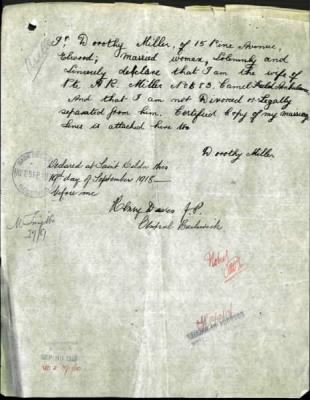 I, Dorothy Miller, of 15 Pine Avenue,
Elwood; Married woman, Solemnly and
Sincerely declare that I am the wife of
Pte. A R. Miller No 653. Camel Field Ambulance
And that I am not Divorced or Legally
separated from him. Certified Copy of my marriage
lines is attached here to
Dorothy Miller
Declared at Saint Kilda this
day of September 1918
before me
Henry J.P.
Central Bailiwick
24/9
SEP 1918